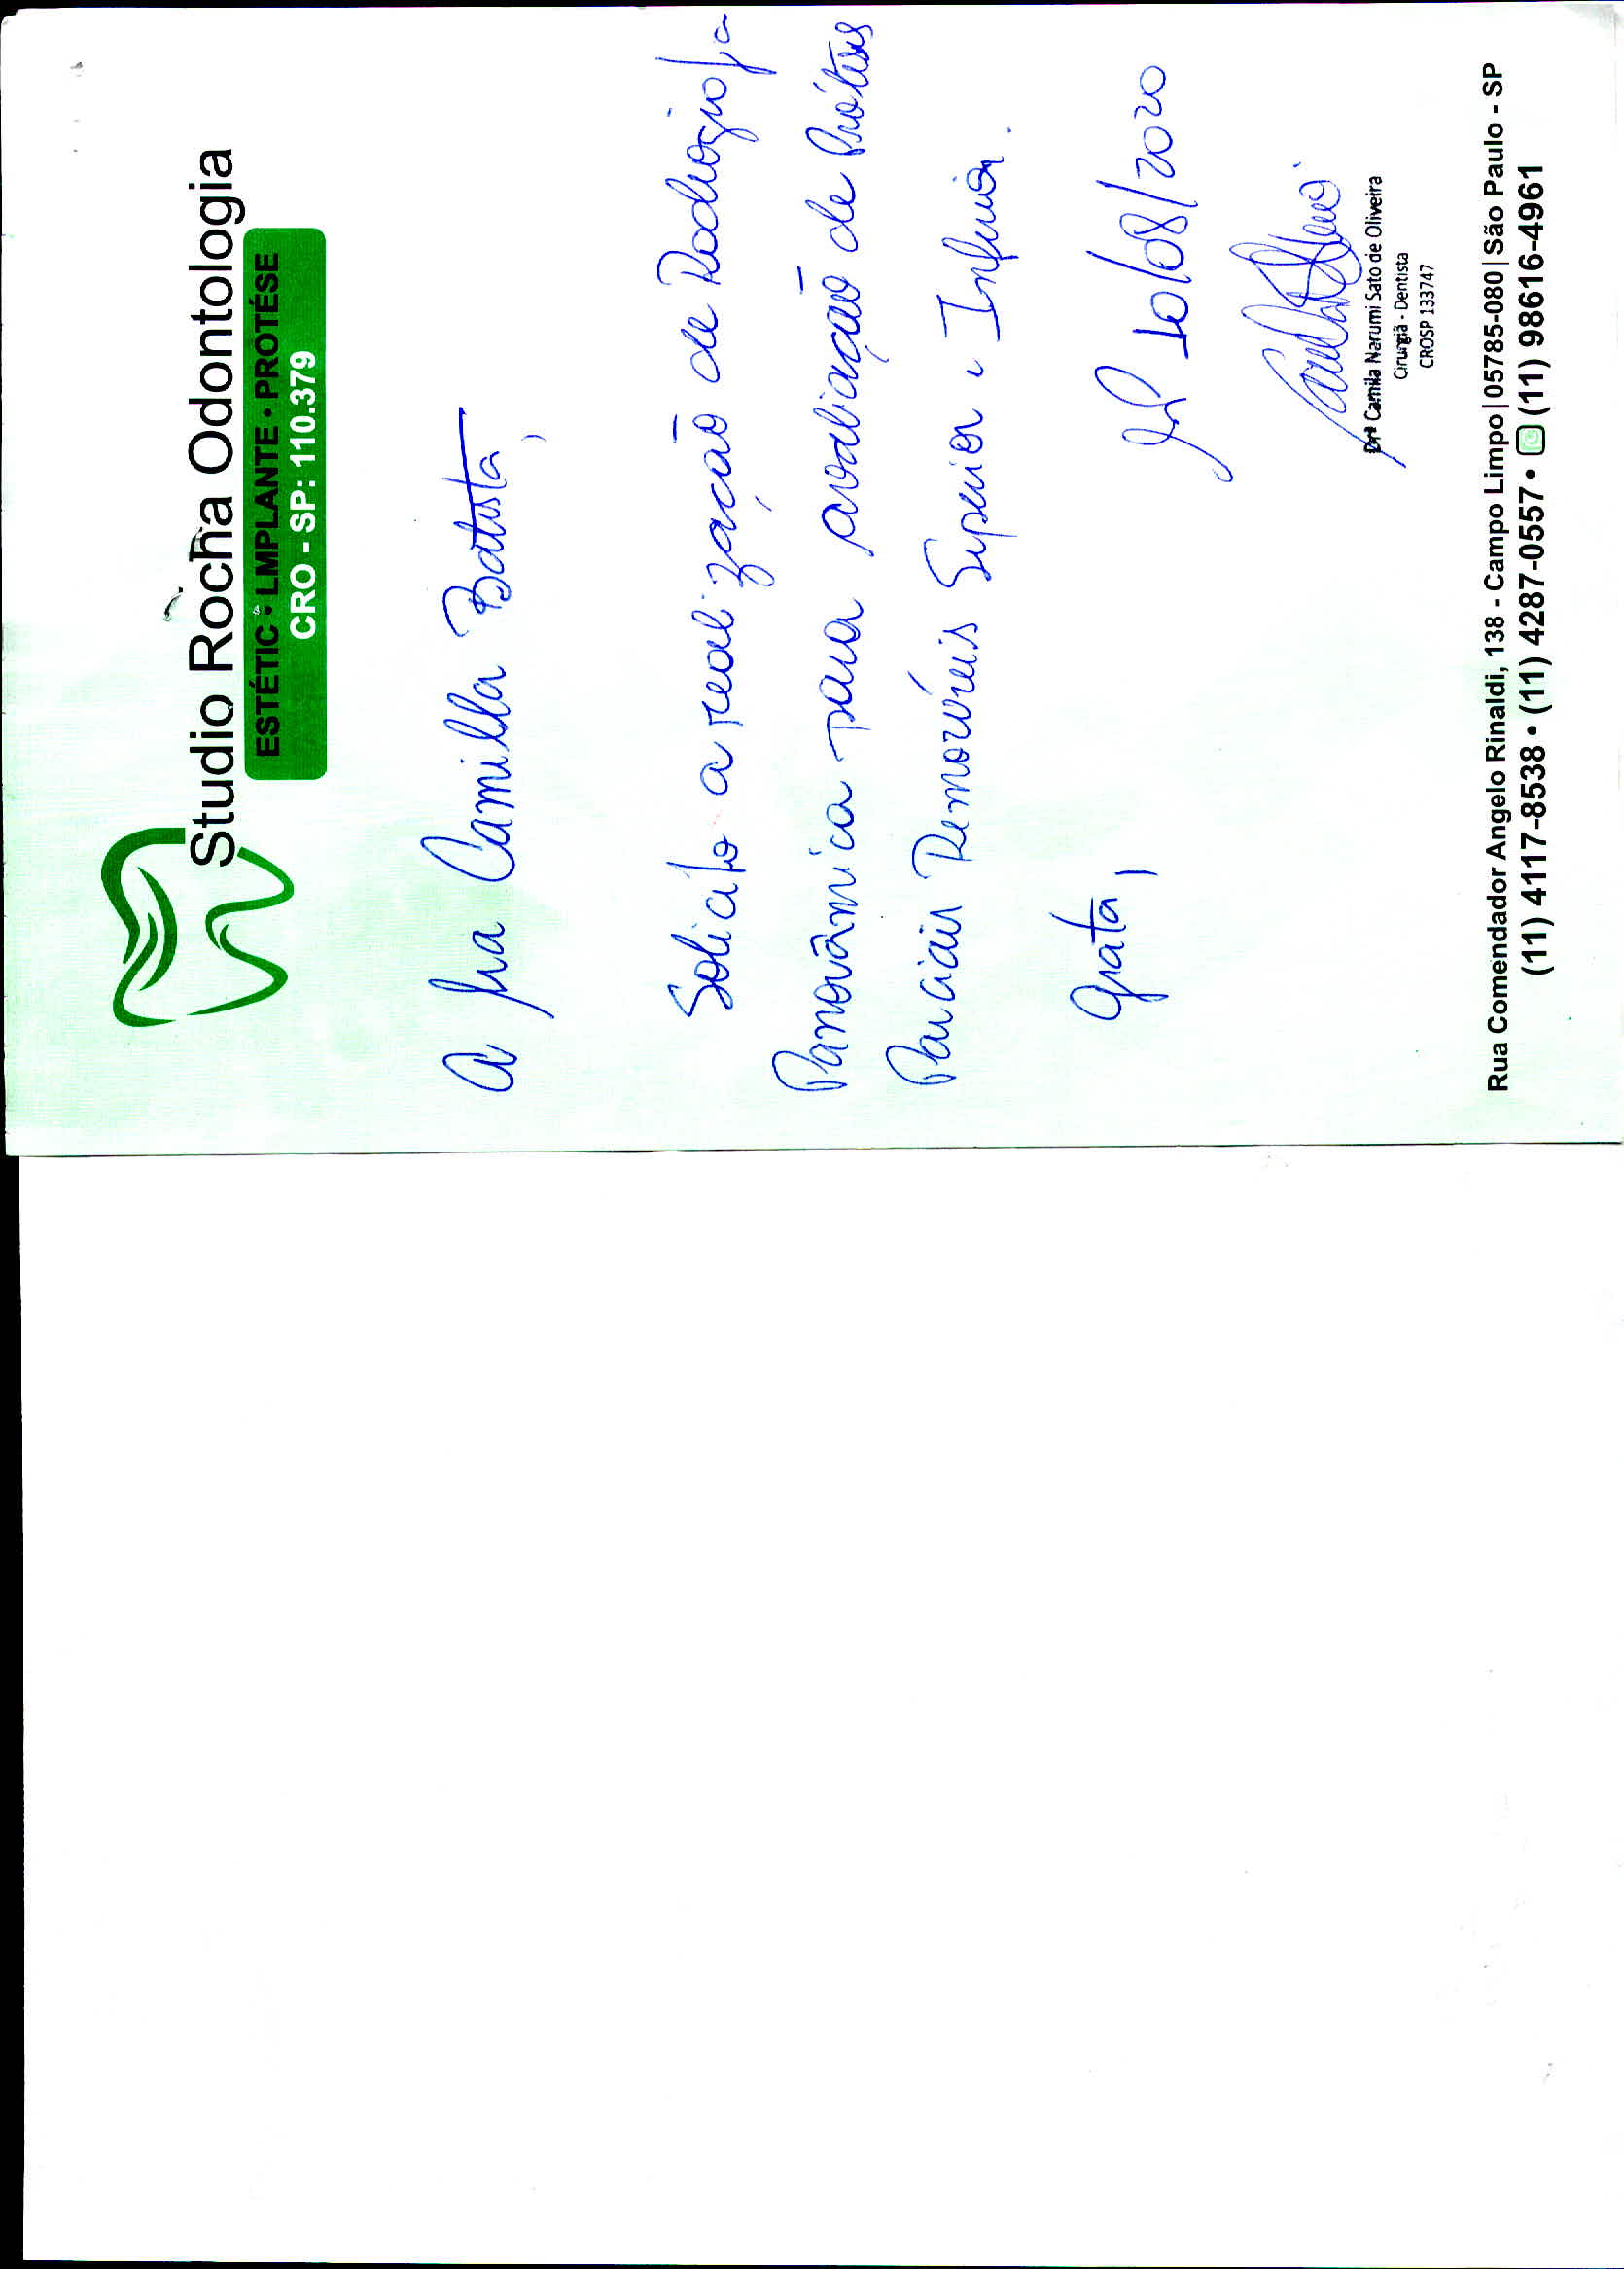 Studio Rocha Odontologia
ESTÉTIC • LMPLANTE • PROTÉSE
CRO - SP: 110.379
A Sra Camilla Batista,
Solicito a realização de Radiografia
Panorâmica para avaliação de Próteses
Parciais Removíveis Superior e Inferior.
Grata,
SP 10/08/2020
Drª Camila Narumi Sato de Oliveira
Cirurgiã - Dentista
CROSP 133747
Rua Comendador Angelo Rinaldi, 138 - Campo Limpo|05785-080|São Paulo - SP
(11) 4117-8538 • (11) 4287-0557 • (11) 98616-4961